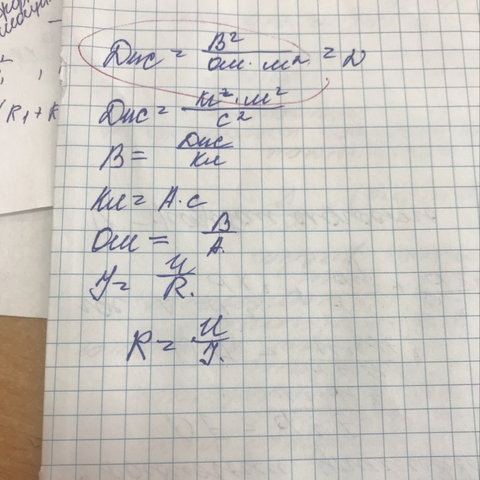 Дж = В² / Ом · м² = 2
Дж = кг · м² / с²
В = Дж / Кл
Кл = А · с
Ом = В / А.
I = U / R.
R = U / I.
/ R1 + R